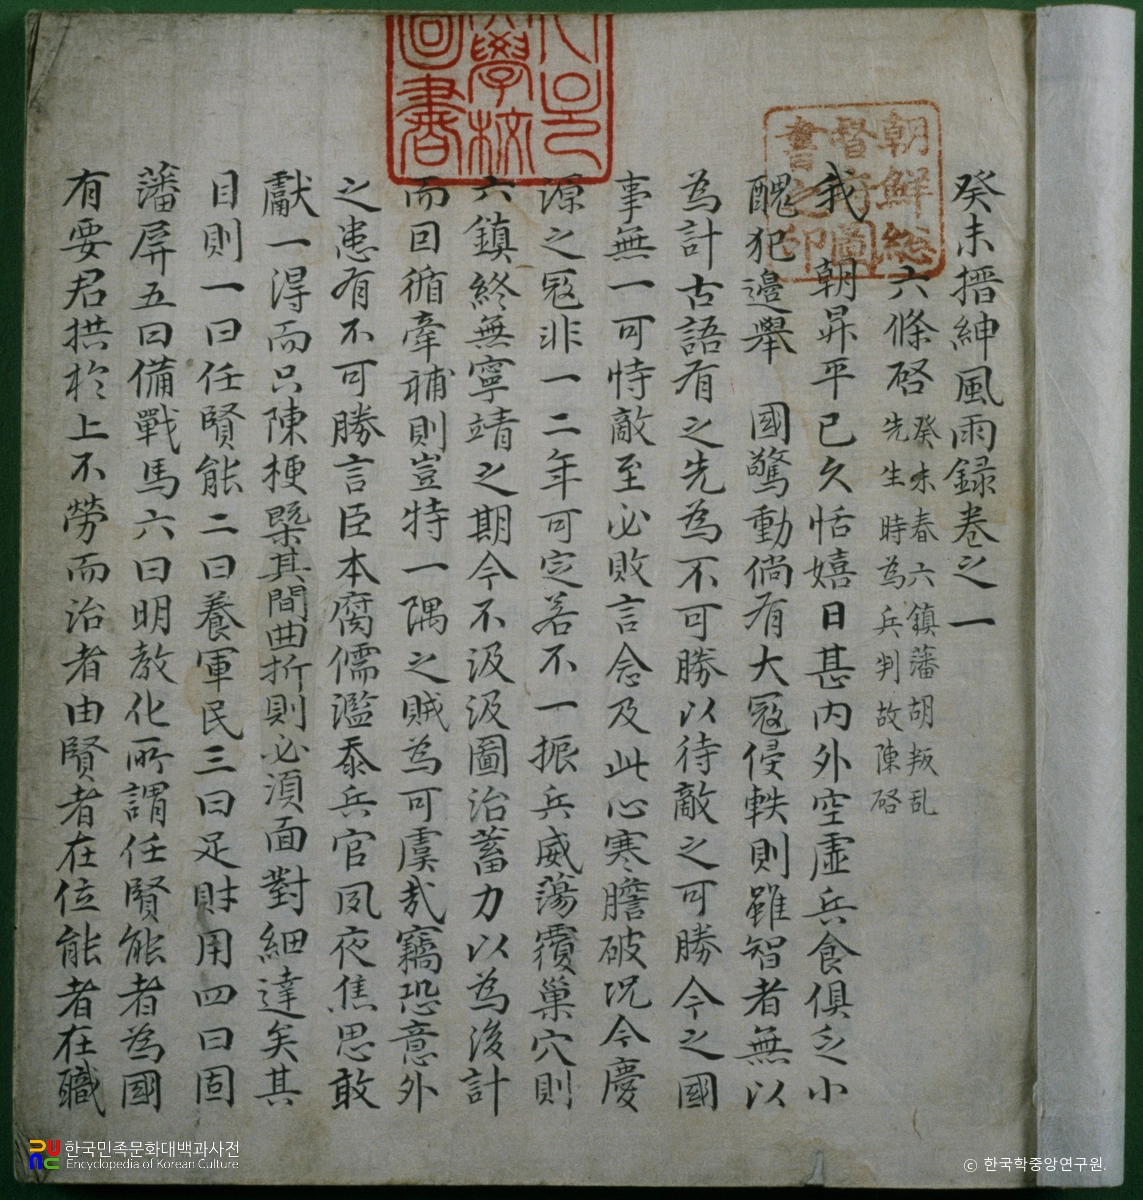 癸未搢紳風雨錄卷之一
六條啓
癸未春六鎮藩胡叛乱
先生時為兵判故陳啓
我朝昇平已久恬嬉日甚内外空虛兵食俱乏小
醜犯邊舉 國驚動倘有大冦侵軼則雖智者無以
為計古語有之先為不可勝以待敵之可勝今之國
事無一可恃敵至必敗言念及此心寒膽破况今慶
源之冦非一二年可定若不一振兵威蕩覆巢穴則
六鎮終無寧靖之期今不汲汲圖治蓄力以為後計
而回循牽補則豈特一隅之賊為可虞㦲竊恐意外
之患有不可勝言臣本腐儒濫忝兵官夙夜焦思敢
獻一得而只陳梗槩其間曲折則必須面對細達矣其
目則一曰任賢能二曰養軍民三曰足財用四曰固
藩屏五曰備戰馬六曰明教化所謂任賢能者為國
有要君拱於上不勞而治者由賢者在位能者在職
朝鮮總
督府圖
書之印
學校
圖書
한국민족문화대백과사전
Encyclopedia of Korean Culture
© 한국학중앙연구원.